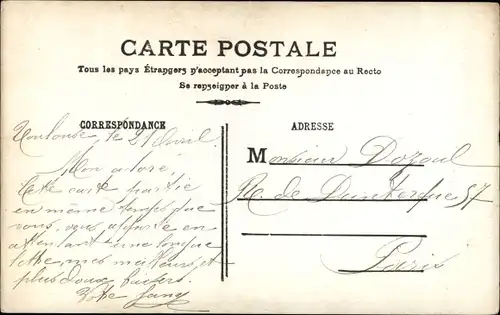 CARTE POSTALE
Tous les pays Étrangers n'acceptant pas la Correspondance au Recto
Se renseigner à la Poste
CORRESPONDANCE
Toulouse le 21 Avril.
Mon adoré,
Cette carte partie
en même temps que
vous, vous apporte en
attendant une longue
lettre, mes meilleurs et
plus doux baisers.
Votre
ADRESSE
Monsieur Dozoul
R. de Dunkerque 57
Paris